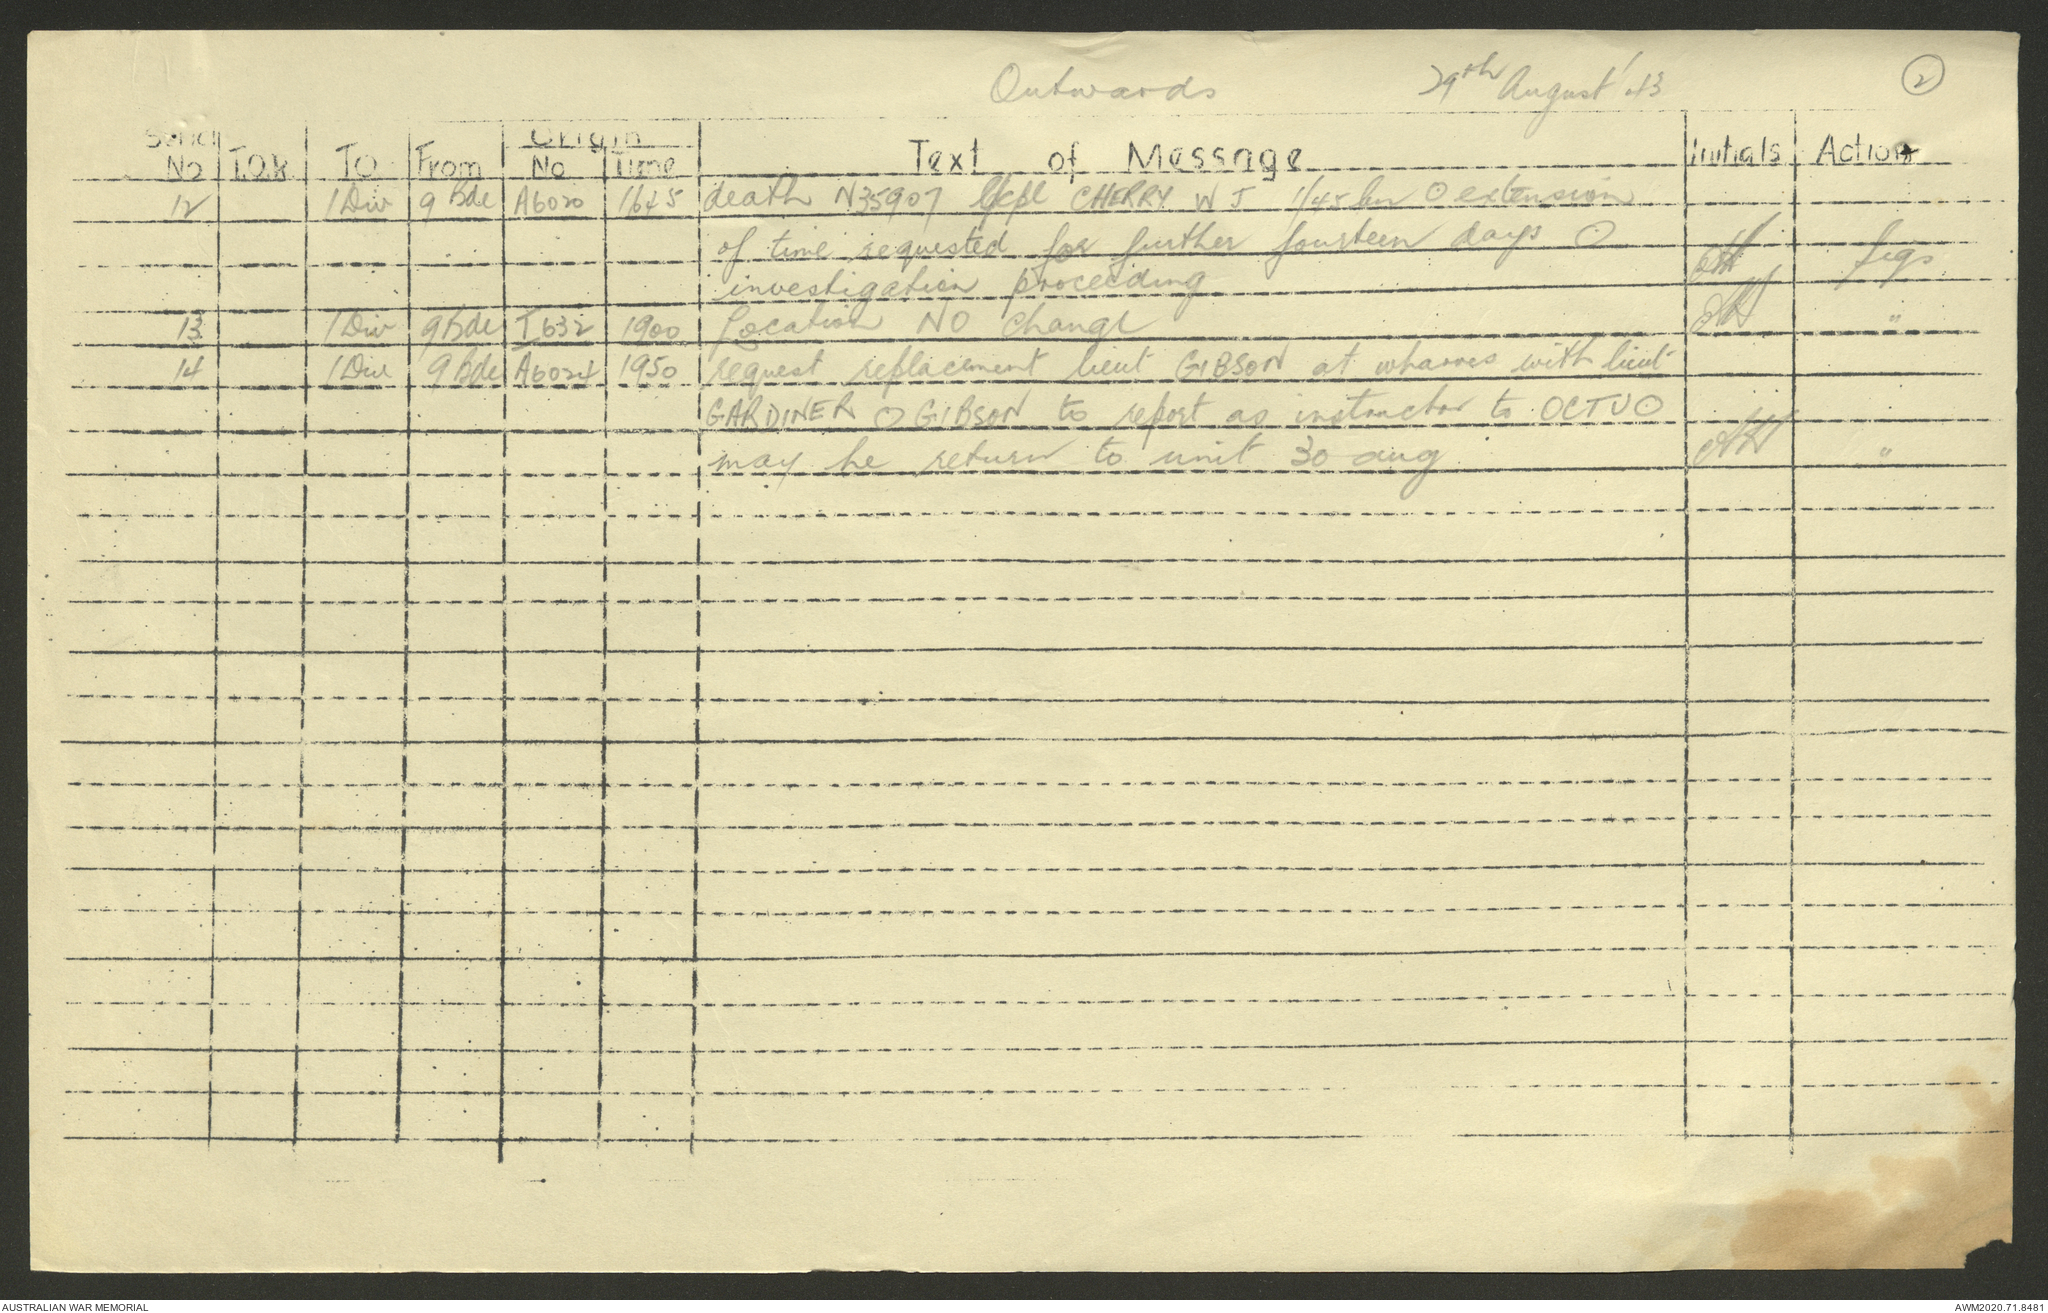 Outwards 29th August '43 2
Serial Origin
No T.O.R TO From No Time Text of Message Initials Action
12 1 Div 9 Bde A6020 1645 death N35907 CHERRY W J 1/45 bn O extension
of time requested for further fourteen days O
investigation proceeding sigs
13 1 Div 9 Bde I632 1900 Location NO change "
14 1 Div 9 Bde A6024 1950 request replacement lieut GIBSON at wharves with lieut
GARDINER O GIBSON to report as instructor to OCTU O
may he return to unit 30 aug "
AUSTRALIAN WAR MEMORIAL AWM2020.71.8481